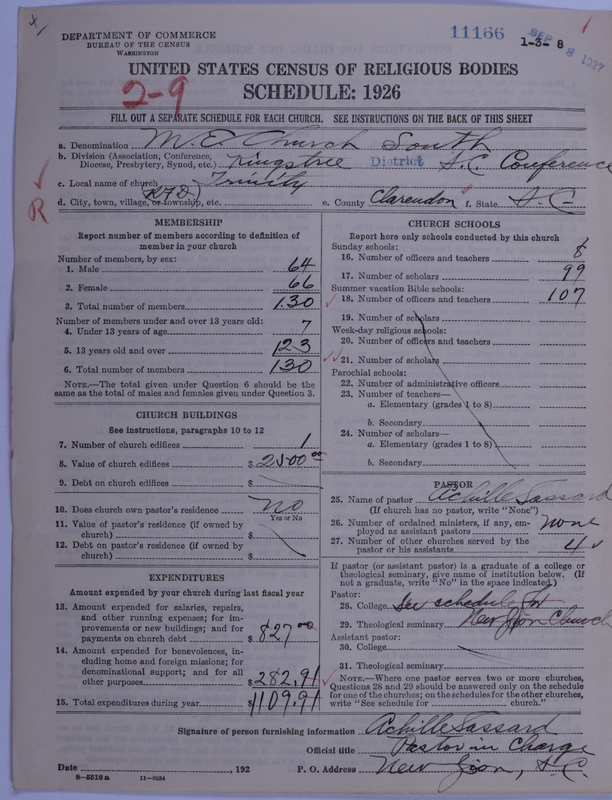 DEPARTMENT OF COMMERCE
BUREAU OF THE CENSUS
WASHINGTON
11166
1-3-8
SEP 8 1927
UNITED STATES CENSUS OF RELIGIOUS BODIES
2-9
SCHEDULE: 1926
FILL OUT A SEPARATE SCHEDULE FOR EACH CHURCH. SEE INSTRUCTIONS ON THE BACK OF THIS SHEET
a. Denomination M. E. Church South
b. Division (Association, Conference, Diocese, Presbytery, Synod, etc.) Kingstree District S.C. Conference
c. Local name of church Trinity
R
d. City, town, village, or township, etc. RFD e. County Clarendon f. State S.C.
MEMBERSHIP
Report number of members according to definition of
member in your church
Number of members, by sex:
1. Male 64
2. Female 66
3. Total number of members 130
Number of members under and over 13 years old:
4. Under 13 years of age 7
5. 13 years old and over 123
6. Total number of members 130
NOTE.—The total given under Question 6 should be
same as the total of males and females given under Question 3.
CHURCH BUILDINGS
See instructions, paragraphs 10 to 12
7. Number of church edifices 1
8. Value of church edifices $ 2500 00
9. Debt on church edifices $
10. Does church own pastor's residence no
Yes or No
11. Value of pastor's residence (if owned by
church) $
12. Debt on pastor's residence (if owned by
church) $
EXPENDITURES
Amount expended by your church during last fiscal year
13. Amount expended for salaries, repairs,
and other running expenses; for im-
provements or new buildings; and for
payments on church debt $ 827 00
14. Amount expended for benevolences, in-
cluding home and foreign missions; for
denominational support; and for all
other purposes $ 282.91
15. Total expenditures during year $ 1109.91
CHURCH SCHOOLS
Report here only schools conducted by this church
Sunday schools:
16. Number of officers and teachers 8
17. Number of scholars 99
Summer vacation Bible schools:
18. Number of officers and teachers 107
19. Number of scholars
Week-day religious schools:
20. Number of officers and teachers
21. Number of scholars
Parochial schools:
22. Number of administrative officers
23. Number of teachers—
a. Elementary (grades 1 to 8)
b. Secondary
24. Number of scholars—
a. Elementary (grades 1 to 8)
b. Secondary
PASTOR
25. Name of pastor Achille Sassard
(If church has no pastor, write "None")
26. Number of ordained ministers, if any, em-
ployed as assistant pastors none
27. Number of other churches served by the
pastor or his assistants 4
If pastor (or assistant pastor) is a graduate of a college or
theological seminary, give name of institution below. (If
not a graduate, write "No" in the space indicated.)
Pastor:
28. College See schedule for
29. Theological seminary New Zion Church
Assistant pastor:
30. College
31. Theological seminary
NOTE.—Where one pastor serves two or more churches,
Questions 28 and 29 should be answered only on the schedule
for one of the churches; on the schedules for the other churches,
write "See schedule for church."
Signature of person furnishing information Achille Sassard
Official title Pastor in Charge
Date , 192 P. O. Address New Zion, S.C.
8—5518 a 11—9084